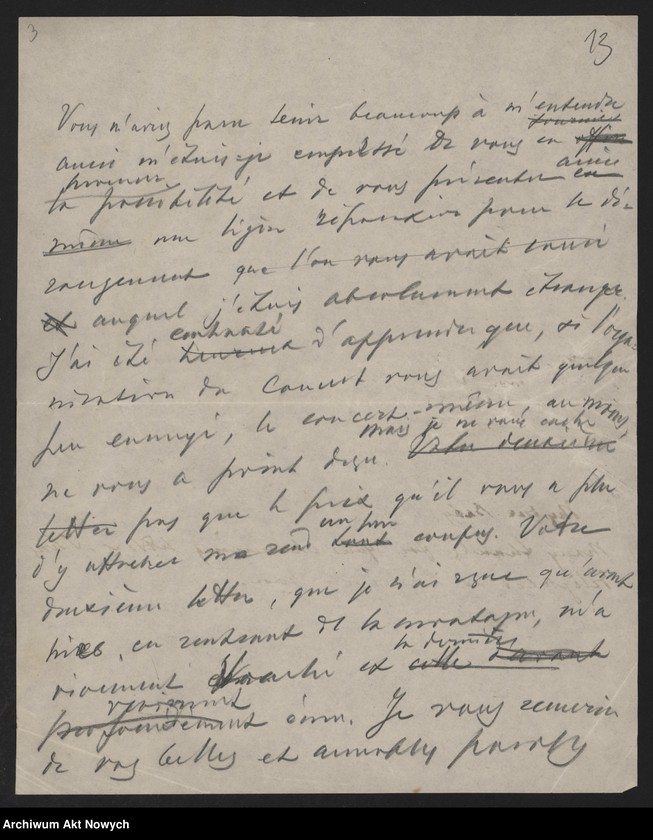 3
13
Vous m'aviez paru tenir beaucoup à m'entendre
aussi m'étais-je empressé de vous en
procurer
la possibilité et de vous présenter ainsi en
même une légère réparation pour le dé-
rangement que l'on vous avait causé
et auquel j'étais absolument étranger.
J'ai été enchanté d'apprendre que, si l'orga-
nisation du Concert vous avait quelque
peu ennuyé, le concert-même, au moins,
mais je ne vous cache
ne vous a point déçu.
lettre pas que le prix qu'il vous a plu
un peu
d'y attacher me rend tout confus. Votre
deuxième lettre, que je n'ai reçue qu'avant
hier, en rentrant de la montagne, m'a
la dernière
vivement touché et celle
vraiment
profondément ému. Je vous remercie
de vos belles et aimables paroles
Archiwum Akt Nowych